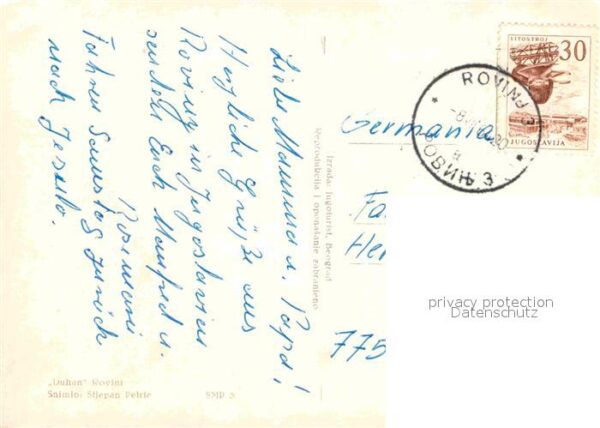 Liebe Mamma u. Papa!
Herzlich Grüße aus
Rovinj in Jugoslavien
senden Euch Manfred u.
Rosmarie
Fahren Samstag zurück
nach Jesolo.
Germania
Fa
He
775
LITOSTROJ
30
JUGOSLAVIJA
ROVINJ
РОВИЊ
Izrada: Jugoturist, Beograd
Reprodukcija i oponašanje zabranjeno
privacy protection
Datenschutz
„Duhan" Rovinj
Snimio: Stjepan Petric
SMP 3